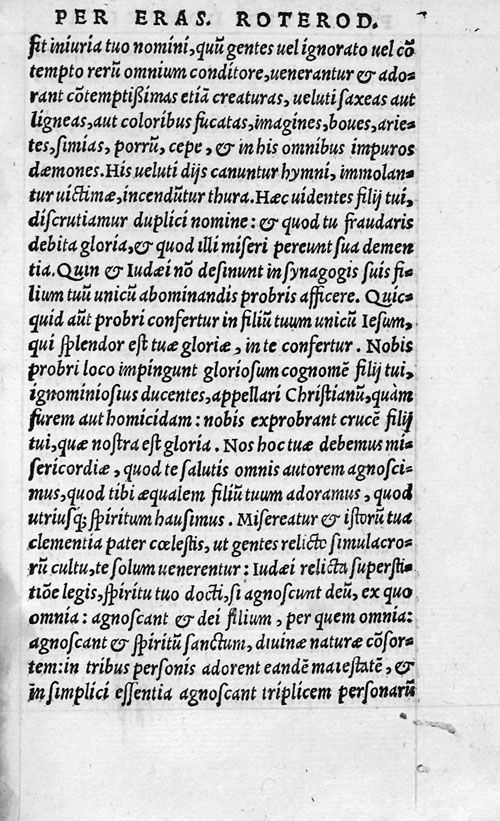 PER ERAS. ROTEROD.
fit iniuria tuo nomini, quū gentes uel ignorato uel cō
tempto rerū omnium conditore, uenerantur & ado-
rant cōtemptißimas etiā creaturas, ueluti saxeas aut
ligneas, aut coloribus fucatas, imagines, boues, arie-
tes, simias, porrū, cepe, & in his omnibus impuros
dæmones. His ueluti dijs canuntur hymni, immolan-
tur uictimæ, incendūtur thura. Hæc uidentes filij tui,
discrutiamur duplici nomine: & quod tu fraudaris
debita gloria, & quod illi miseri pereunt sua demen
tia. Quin & Iudæi nō desinunt in synagogis suis fi-
lium tuū unicū abominandis probris afficere. Quic-
quid aūt probri confertur in filiū tuum unicū Iesum,
qui splendor est tuæ gloriæ, in te confertur. Nobis
probri loco impingunt gloriosum cognomē filij tui,
ignominiosius ducentes, appellari Christianū, quàm
furem aut homicidam: nobis exprobrant crucē filij
tui, quæ nostra est gloria. Nos hoc tuæ debemus mi-
sericordiæ, quod te salutis omnis autorem agnosci-
mus, quod tibi æqualem filiū tuum adoramus, quod
utriusq; spiritum hausimus. Misereatur & istorū tua
clementia pater cœlestis, ut gentes relicto simulacro-
rū cultu, te solum uenerentur: Iudæi relicta supersti-
tiōe legis, spiritu tuo docti, si agnoscunt deū, ex quo
omnia: agnoscant & dei filium, per quem omnia:
agnoscant & spiritū sanctum, diuinæ naturæ cōsor-
tem: in tribus personis adorent eandē maiestatē, &
in simplici essentia agnoscant triplicem personarū